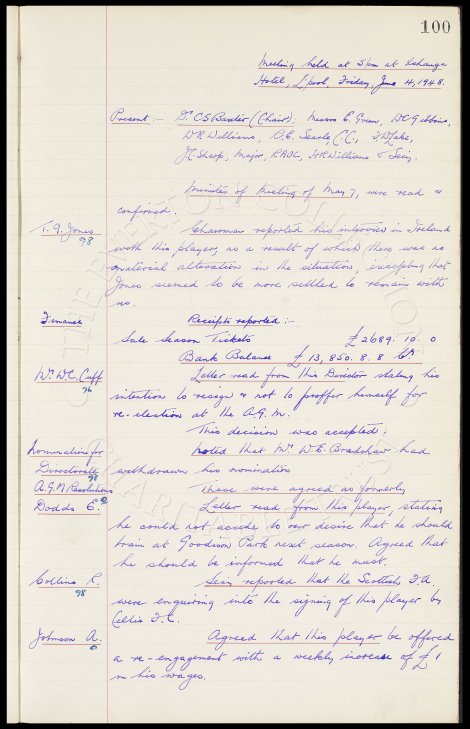 100
Meeting held at 5pm at Exchange
Hotel, L'pool, Friday, June 4, 1948.
Present :- Dr CS Baxter (Chair). Messrs E. Green, WC Gibbins,
WR Williams, R.E. Searle C.C.,
JC Sharp, Major, RAOC, HR Williams & Secy.
Minutes of Meeting of May 7, were read &
confirmed.
T. G. Jones 98 Chairman reported his interview in Ireland
with this player, as a result of which there was no
material alteration in the situation, excepting that
Jones seemed to be more settled to remain with
us.
Finance Receipts reported :-
Sale Season Tickets £2689. 10. 0
Bank Balance £13,850. 8. 8 Cr
Mr. W.C. Cuff 96 Letter read from this Director stating his
intention to resign & not to proffer himself for
re-election at the A.G.M.
This decision was accepted.
Nominations for Noted that Mr. W.E. Bradshaw had
Directorate 98 withdrawn his nomination
A.G.M Resolutions These were agreed as formerly
Dodds E. Letter read from this player, stating
he could not accede to our desire that he should
train at Goodison Park next season. Agreed that
he should be informed that he must.
Collins R. 98 Secy reported that the Scottish F.A.
were enquiring into the signing of this player by
Celtic F.C.
Johnson A. Agreed that this player be offered
a re-engagement with a weekly increase of £1
in his wages.
THE EVERTON COLLECTION
CHARITABLE TRUST